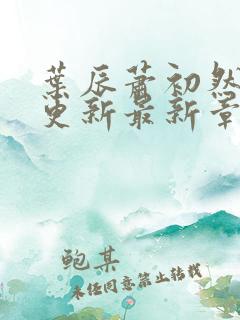 葉辰蕭初然
更新最新章
鲍某
未经同意禁止转载